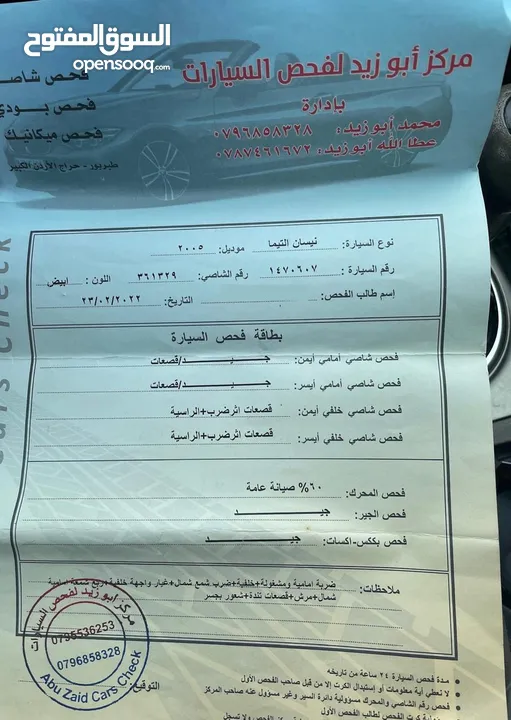 السوق المفتوح
opensooq.com
مركز أبو زيد لفحص السيارات
بإدارة
محمد أبو زيد : ٠٧٩٦٨٥٨٣٢٨
عطا الله أبو زيد : ٠٧٨٧٤٦١٦٧٢
فحص شاصي
فحص بودي
فحص ميكانيك
طبربور - حراج الأردن الكبير
Cars Check
نوع السيارة: نيسان التيما موديل: ٢٠٠٥
رقم السيارة : ١٤٧٠٦٠٧ رقم الشاصي: ٣٦١٣٢٩ اللون : ابيض
إسم طالب الفحص: التاريخ: ٢٣/٠٢/٢٠٢٢
بطاقة فحص السيارة
فحص شاصي أمامي أيمن: جـــيـــد/قصعات
فحص شاصي أمامي أيسر: جـــيـــد/قصعات
فحص شاصي خلفي أيمن: قصعات اثرضرب+الراسية
فحص شاصي خلفي أيسر: قصعات اثرضرب+الراسية
فحص المحرك: ٦٠% صيانة عامة
فحص الجير: جـــيـــد
فحص بككس-اكسات: جـــيـــد
ملاحظات: ضربة امامية ومشغولة+خلفية+ضرب شمع شمال+غيار واجهة خلفية+ربع شمعة امامية
شمال+مرش+قصعات تندة+شعور بجسر
مركز ابو زيد لفحص السيارات
0795536253
0796858328
Abu Zaid Cars Check
التوقيع:
مدة فحص السيارة ٢٤ ساعة من تاريخه
لا تعطي أية معلومات أو إستبدال الكرت إلا من قبل صاحب الفحص الأول
فحص رقم الشاصي والمحرك مسؤولية دائرة السير وغير مسؤول عنه صاحب المركز